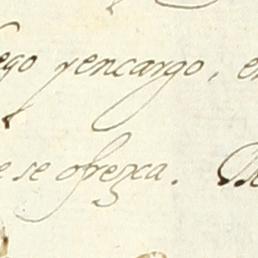 ego yencargo, e
e se ofrezca.